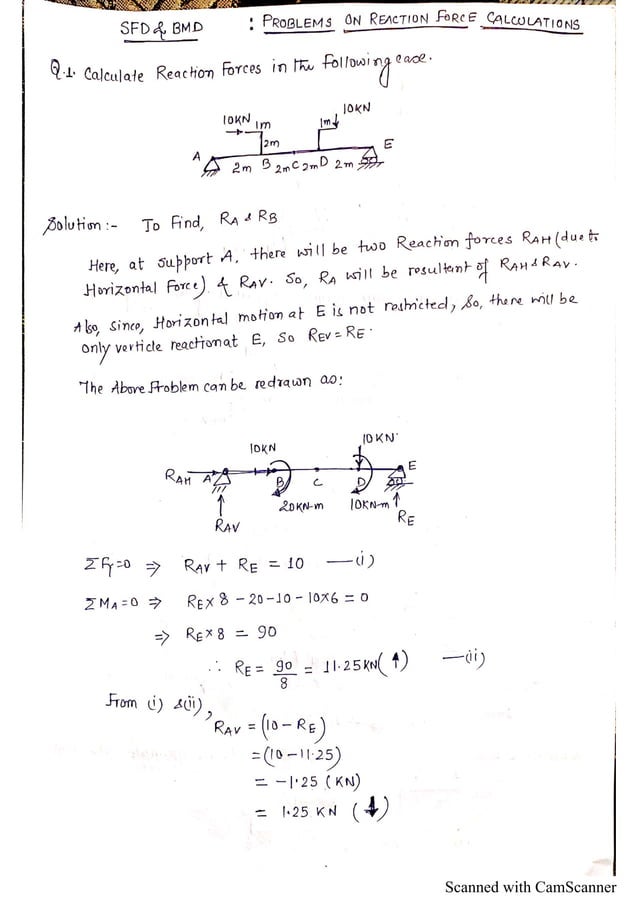 SFD & BMD : PROBLEMS ON REACTION FORCE CALCULATIONS
Q.1. Calculate Reaction Forces in the Following case.
10KN 1m 1m 10KN
2m
A 2m B 2m C 2m D 2m E
Solution :- To Find, RA & RB
Here, at support A, there will be two Reaction forces RAH (due to
Horizontal Force) & RAV. So, RA will be resultant of RAH & RAV.
Also, since, Horizontal motion at E is not restricted, So, there will be
only verticle reaction at E, So REV = RE.
The Above Problem can be redrawn as:
10KN 10KN
RAH A B C D E
20KN-m 10KN-m
RAV RE
ΣFy=0 ⇒ RAV + RE = 10 —(i)
ΣMA=0 ⇒ RE×8 - 20 - 10 - 10×6 = 0
⇒ RE×8 = 90
∴ RE = 90/8 = 11.25KN(↑) —(ii)
From (i) &(ii),
RAV = (10 - RE)
= (10 - 11.25)
= -1.25 (KN)
= 1.25 KN (↓)
Scanned with CamScanner